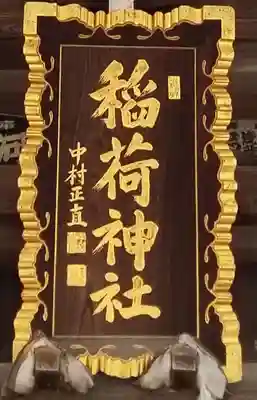 稲荷神社
中村正直